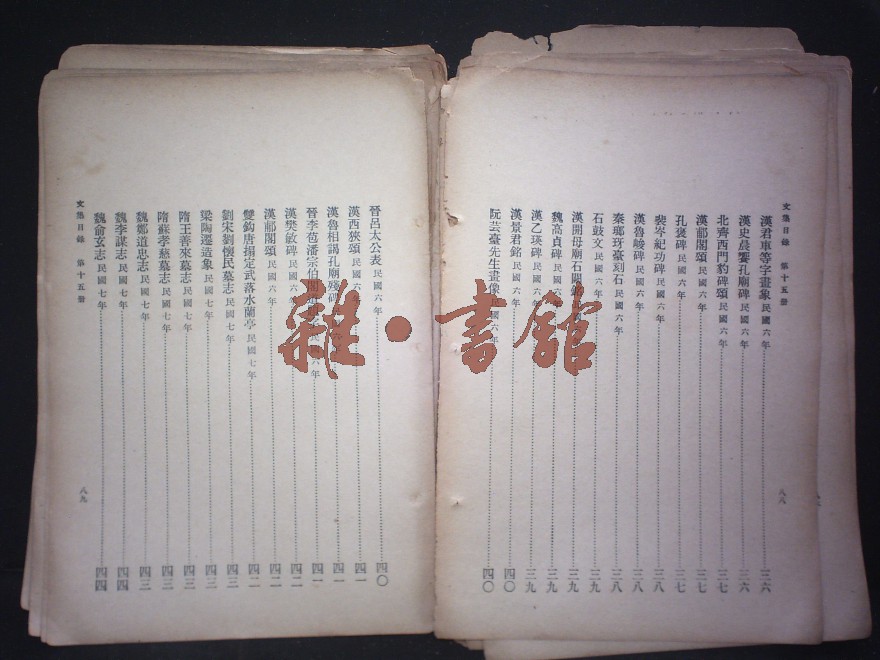 文集目錄 第十五冊
漢君車等字畫象民國六年 三六
漢史晨饗孔廟碑民國六年 三六
北齊西門豹碑頌民國六年 三七
漢郙閣頌民國六年 三七
孔褒碑民國六年 三七
裴岑紀功碑民國六年 三八
漢魯峻碑民國六年 三八
秦瑯玡臺刻石民國六年 三八
石鼓文民國六年 三九
漢開母廟石闕 三九
魏高貞碑民國六年 三九
漢乙瑛碑民國六年 三九
漢景君銘民國六年 四〇
阮芸臺先生畫像民國六年 四〇
八八
文集目錄 第十五冊
晉呂太公表民國六年 四〇
漢西狹頌民國六年 四一
漢魯相謁孔廟殘碑 年 四一
晉李苞潘宗伯閣道 民國六年 四一
漢樊敏碑民國六年 四二
漢郙閣頌民國六年 四二
雙鈎唐搨定武落水蘭亭民國七年 四二
劉宋劉懷民墓志民國七年 四三
梁陶遷造象民國七年 四三
隋王善來墓志民國七年 四三
隋蘇孝慈墓志民國七年 四三
魏鄭道忠志民國七年 四三
魏李謀志民國七年 四四
魏俞玄志民國七年 四四
八九
雜·書館